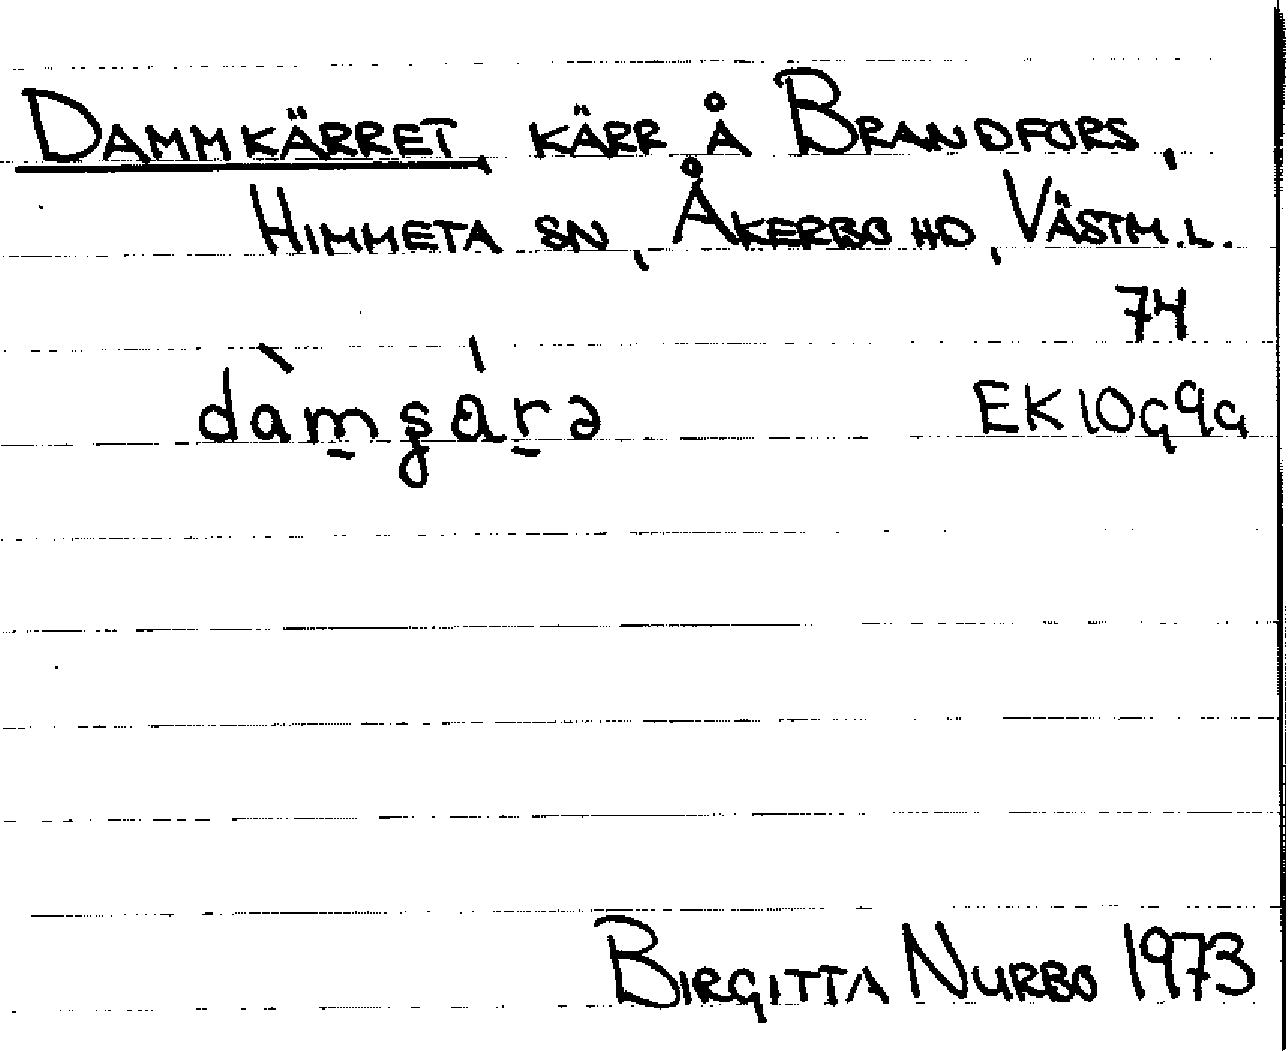 DAMMKÄRRET, KÄRR Å BRANDFORS,
HIMMETA SN, ÅKERBO HD, VÄSTM.L.
74
dàm̱ʂáṟə EK10G9G
BIRGITTA NURBO 1973